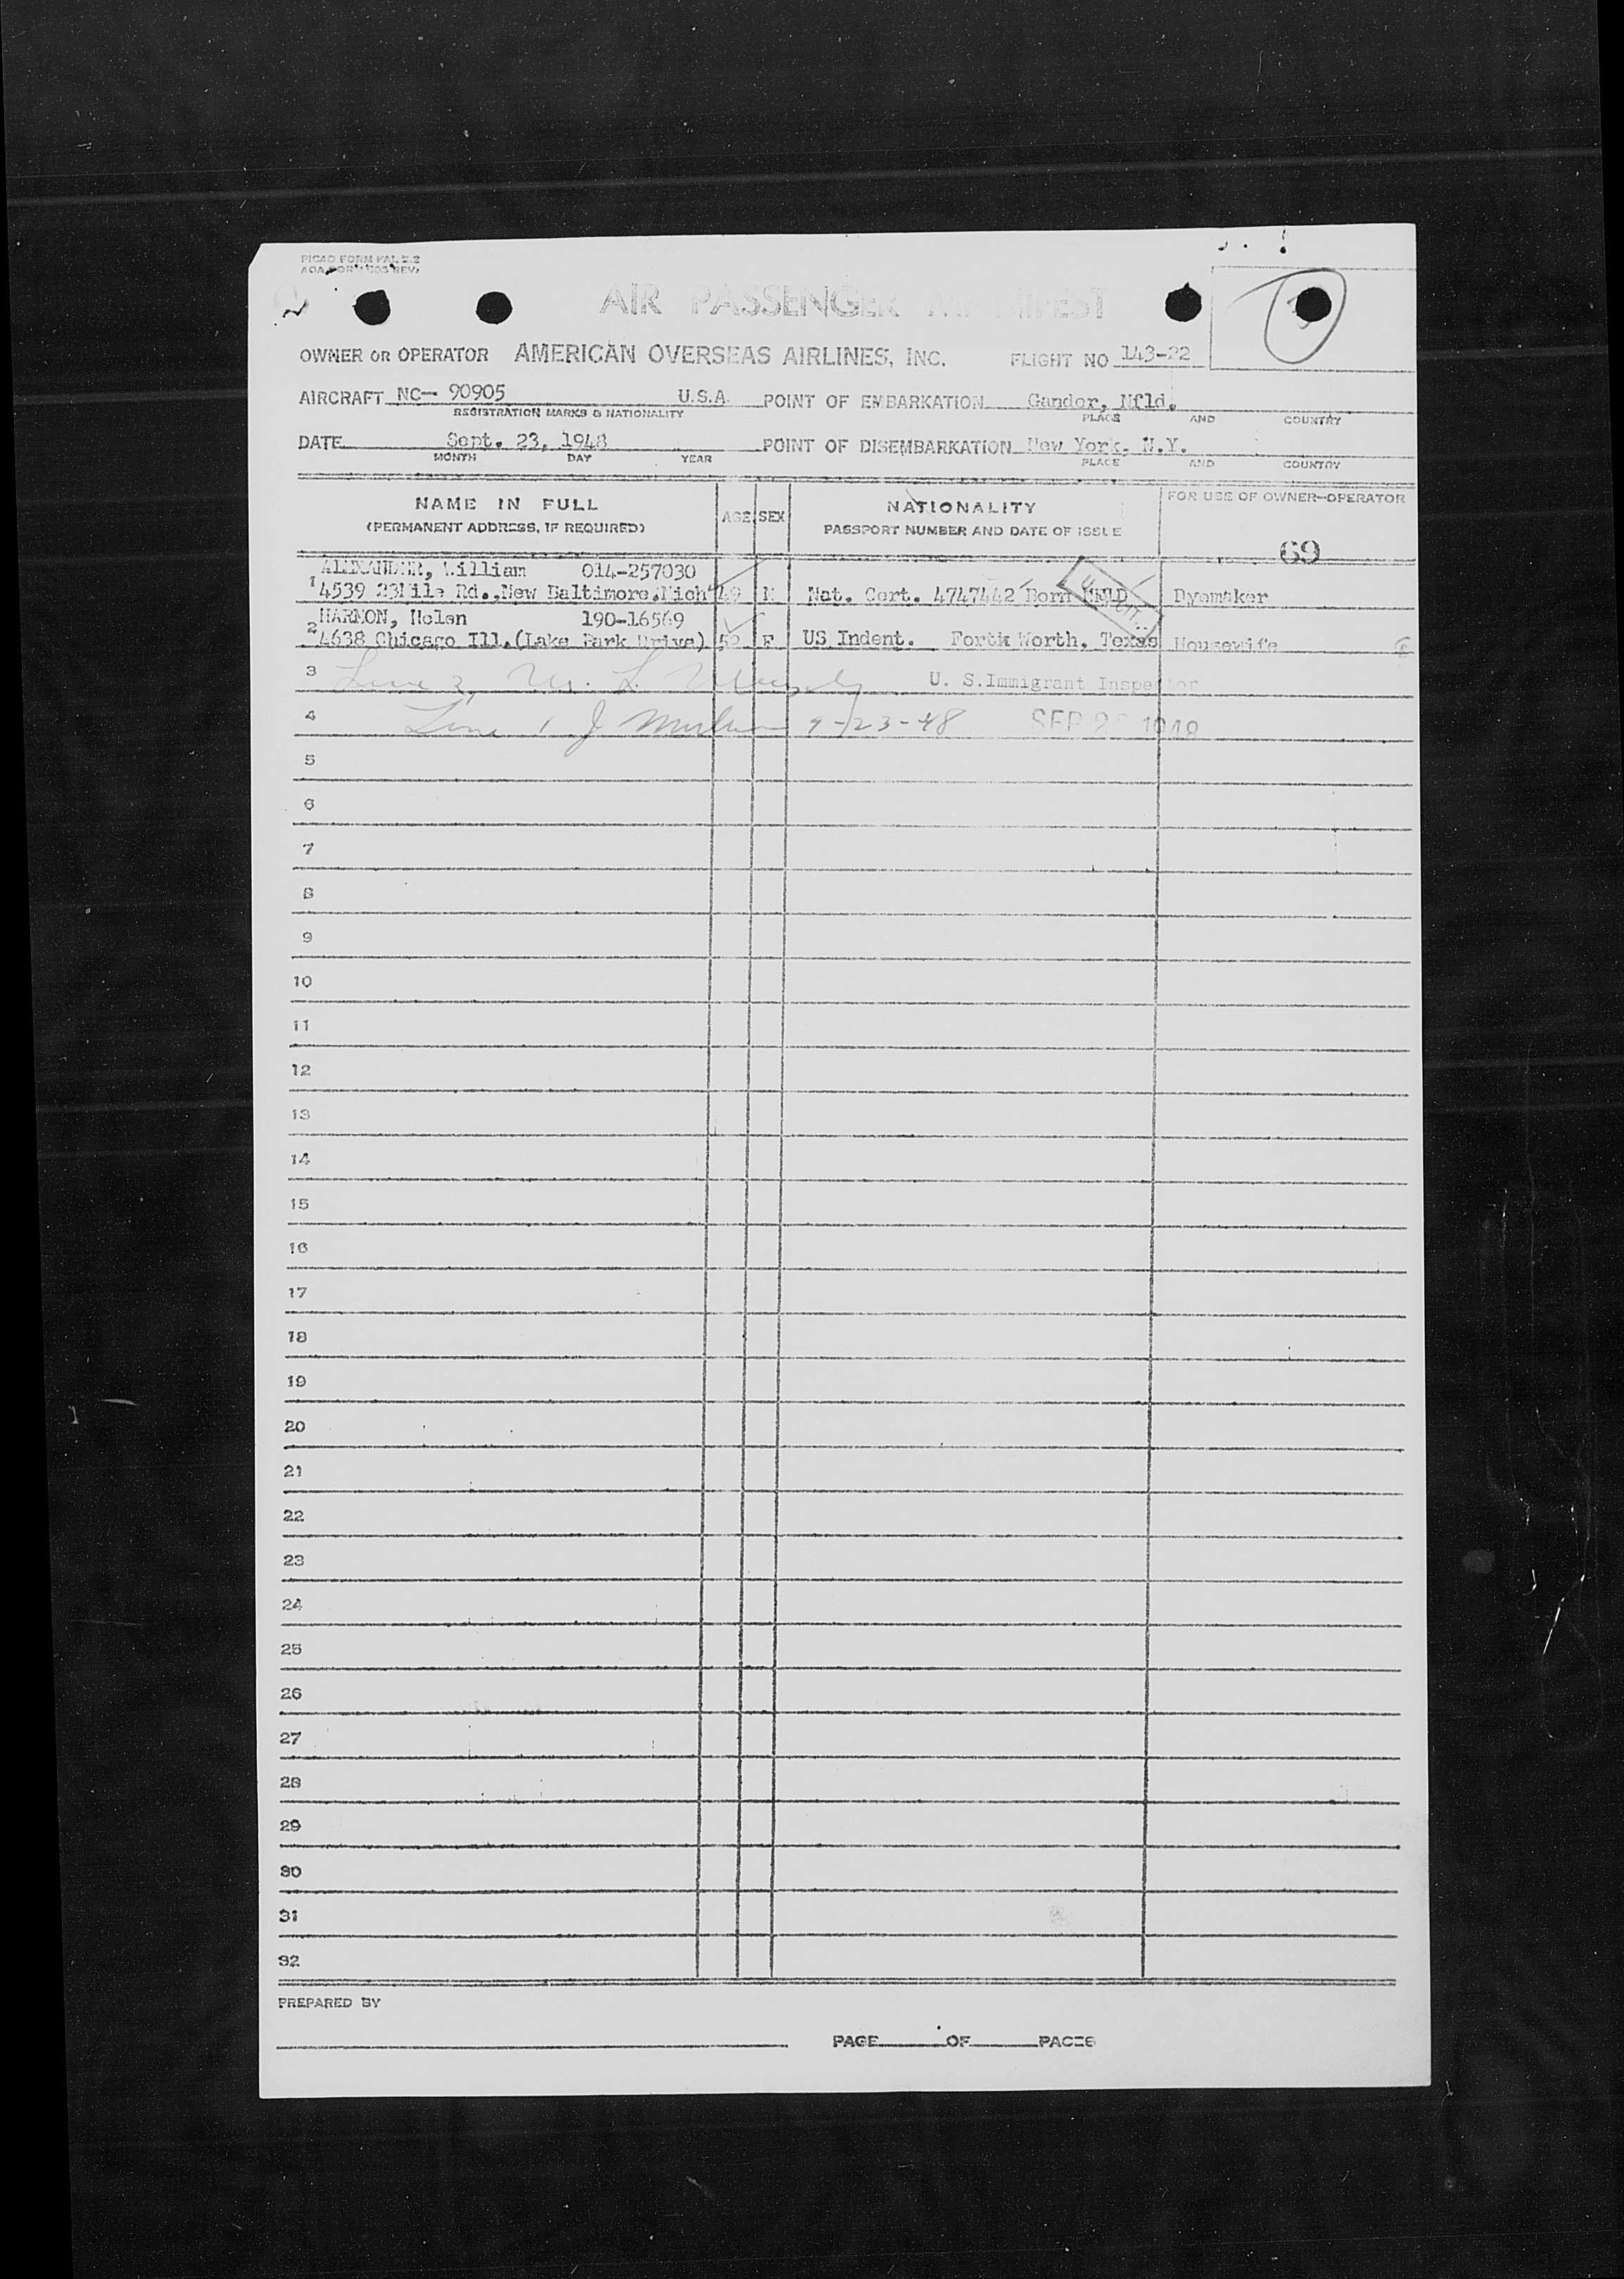 PICAO FORM PAL 2.2
AIR PASSENGER MANIFEST
OWNER OR OPERATOR AMERICAN OVERSEAS AIRLINES, INC. FLIGHT NO 143-22
AIRCRAFT NC- 90905 U.S.A. POINT OF EMBARKATION Gander, Nfld.
REGISTRATION MARKS & NATIONALITY PLACE AND COUNTRY
DATE Sept. 23, 1948 POINT OF DISEMBARKATION New York, N.Y.
MONTH DAY YEAR PLACE AND COUNTRY
NAME IN FULL AGE SEX NATIONALITY FOR USE OF OWNER-OPERATOR
(PERMANENT ADDRESS, IF REQUIRED) PASSPORT NUMBER AND DATE OF ISSUE
69
ALEXANDER, William 014-257030
1 4539 23Mile Rd.,New Baltimore,Mich 49 M Nat. Cert. 4747442 Born NFLD Dyemaker
HARMON, Helen 190-16569
2 4638 Chicago Ill.(Lake Park Drive) 52 F US Indent. Forth Worth, Texas Housewife
3 Line 2, M. L. U. S. Immigrant Inspector
4 Line 1 J 9-23-48 SEP 23 1948
5
6
7
8
9
10
11
12
13
14
15
16
17
18
19
20
21
22
23
24
25
26
27
28
29
30
31
32
PREPARED BY
PAGE OF PAGES